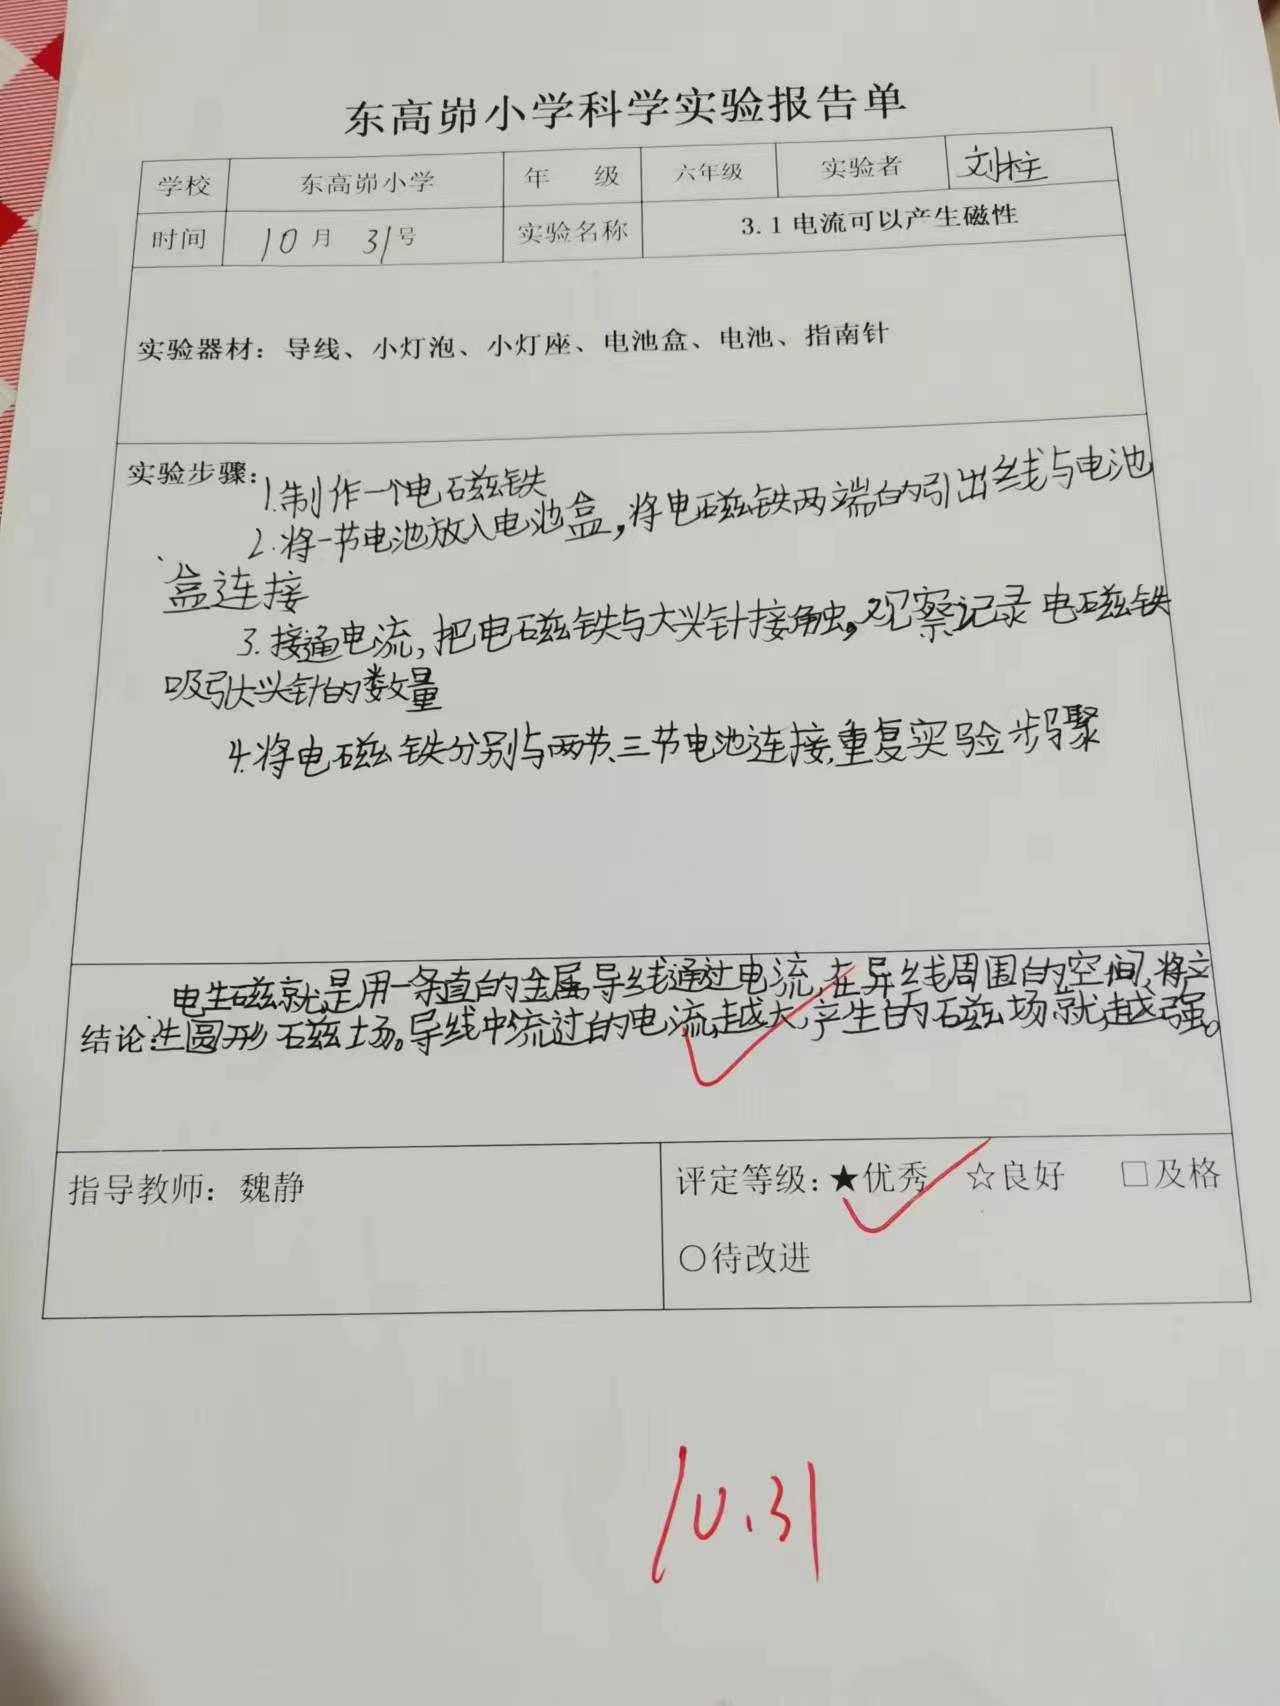 东高峁小学科学实验报告单
学校 东高峁小学 年 级 六年级 实验者 刘柱
时间 10月 31号 实验名称 3.1电流可以产生磁性
实验器材：导线、小灯泡、小灯座、电池盒、电池、指南针
实验步骤：1.制作一个电磁铁
2.将一节电池放入电池盒，将电磁铁两端的引出线与电池
盒连接
3.接通电流，把电磁铁与大头针接触。观察记录电磁铁
吸引大头针的数量
4.将电磁铁分别与两节、三节电池连接，重复实验步骤
电生磁就是用一条直的金属导线通过电流，在导线周围的空间，将产
结论：生圆形磁场。导线中流过的电流越大，产生的磁场就越强。
指导教师：魏静
评定等级：★优秀 ☆良好 □及格
○待改进
10.31